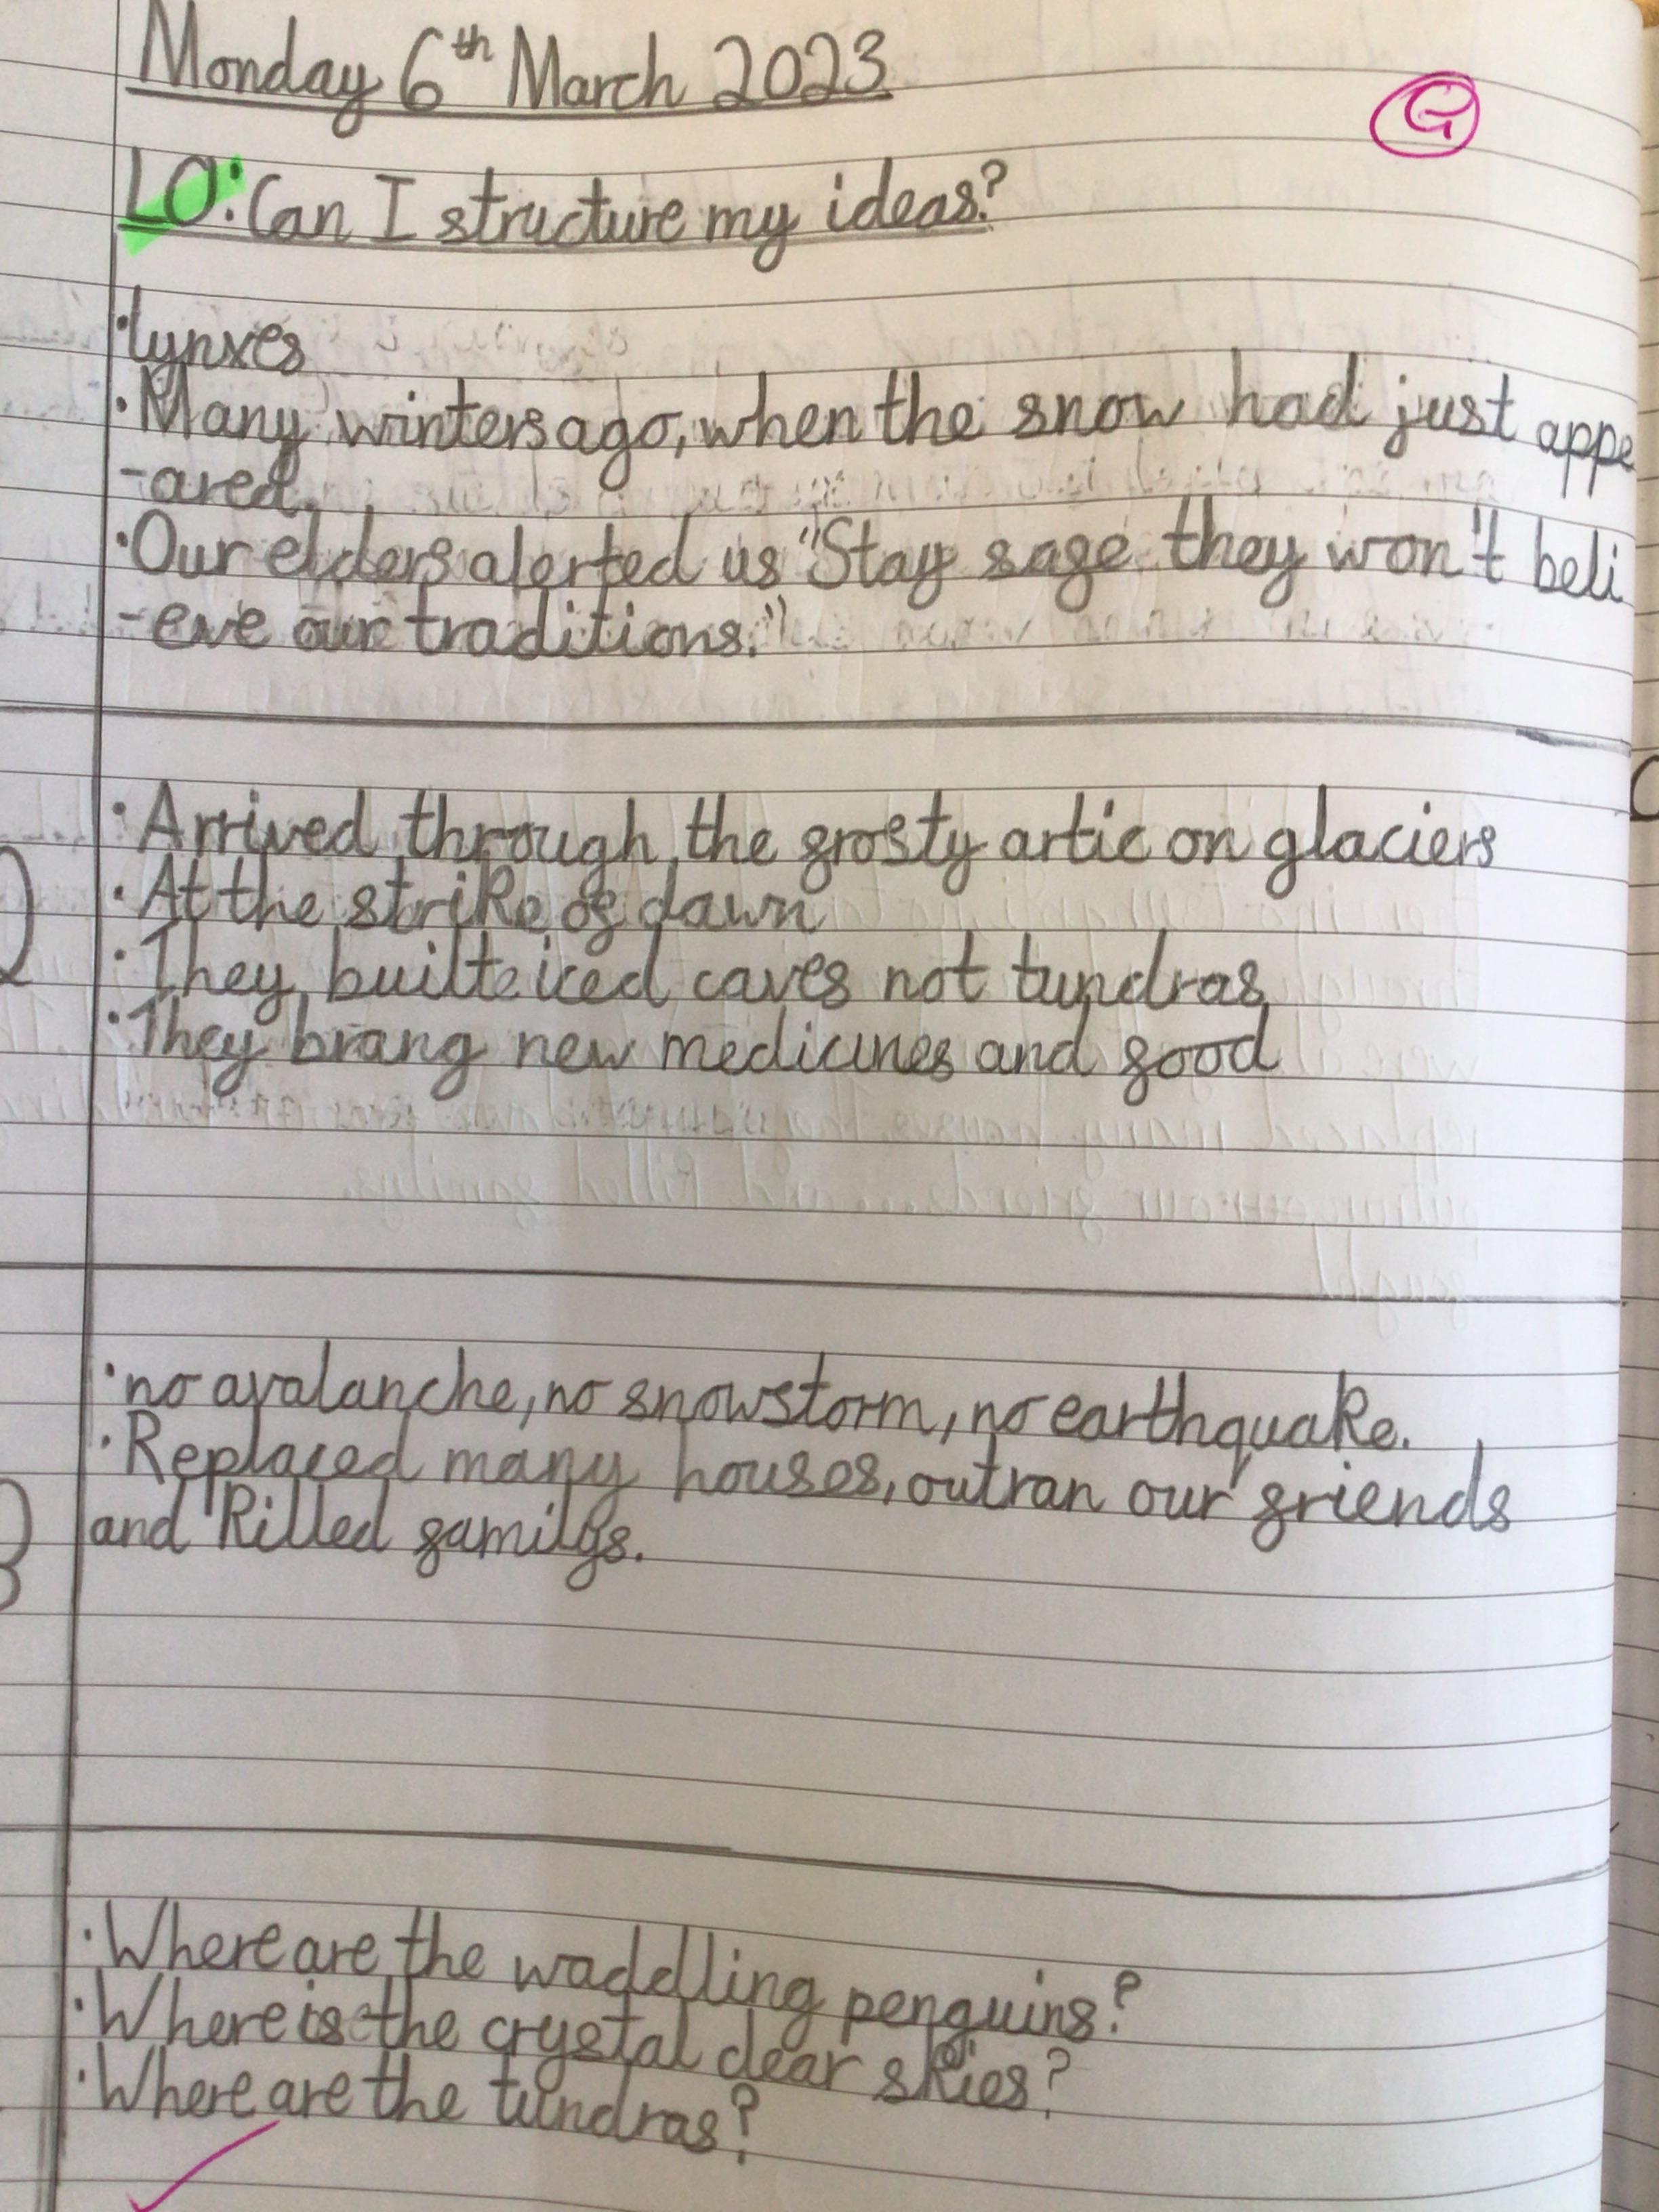 Monday 6th March 2023
G
LO: Can I structure my ideas?
•lynxes
•Many winters ago, when the snow had just appe
-ared,
•Our elders alerted us "Stay safe they won't beli
-eve our traditions."
•Arrived through the frosty artic on glaciers
•At the strike of dawn
2
•They built iced caves not tundras
•They brang new medicines and food
•no avalanche, no snowstorm, no earthquake.
•Replaced many houses, outran our friends
and killed familys.
3
•Where are the waddling penguins?
•Where is the crystal clear skies?
•Where are the tundras?